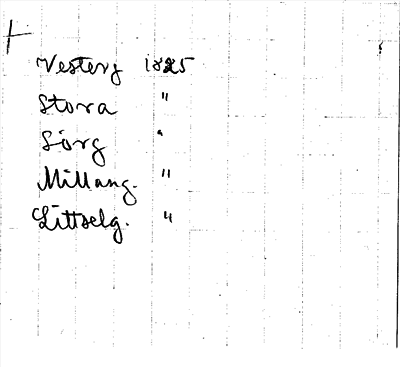 Vesterg 1825
Stora "
Sörg "
Millang. "
Littselg. "